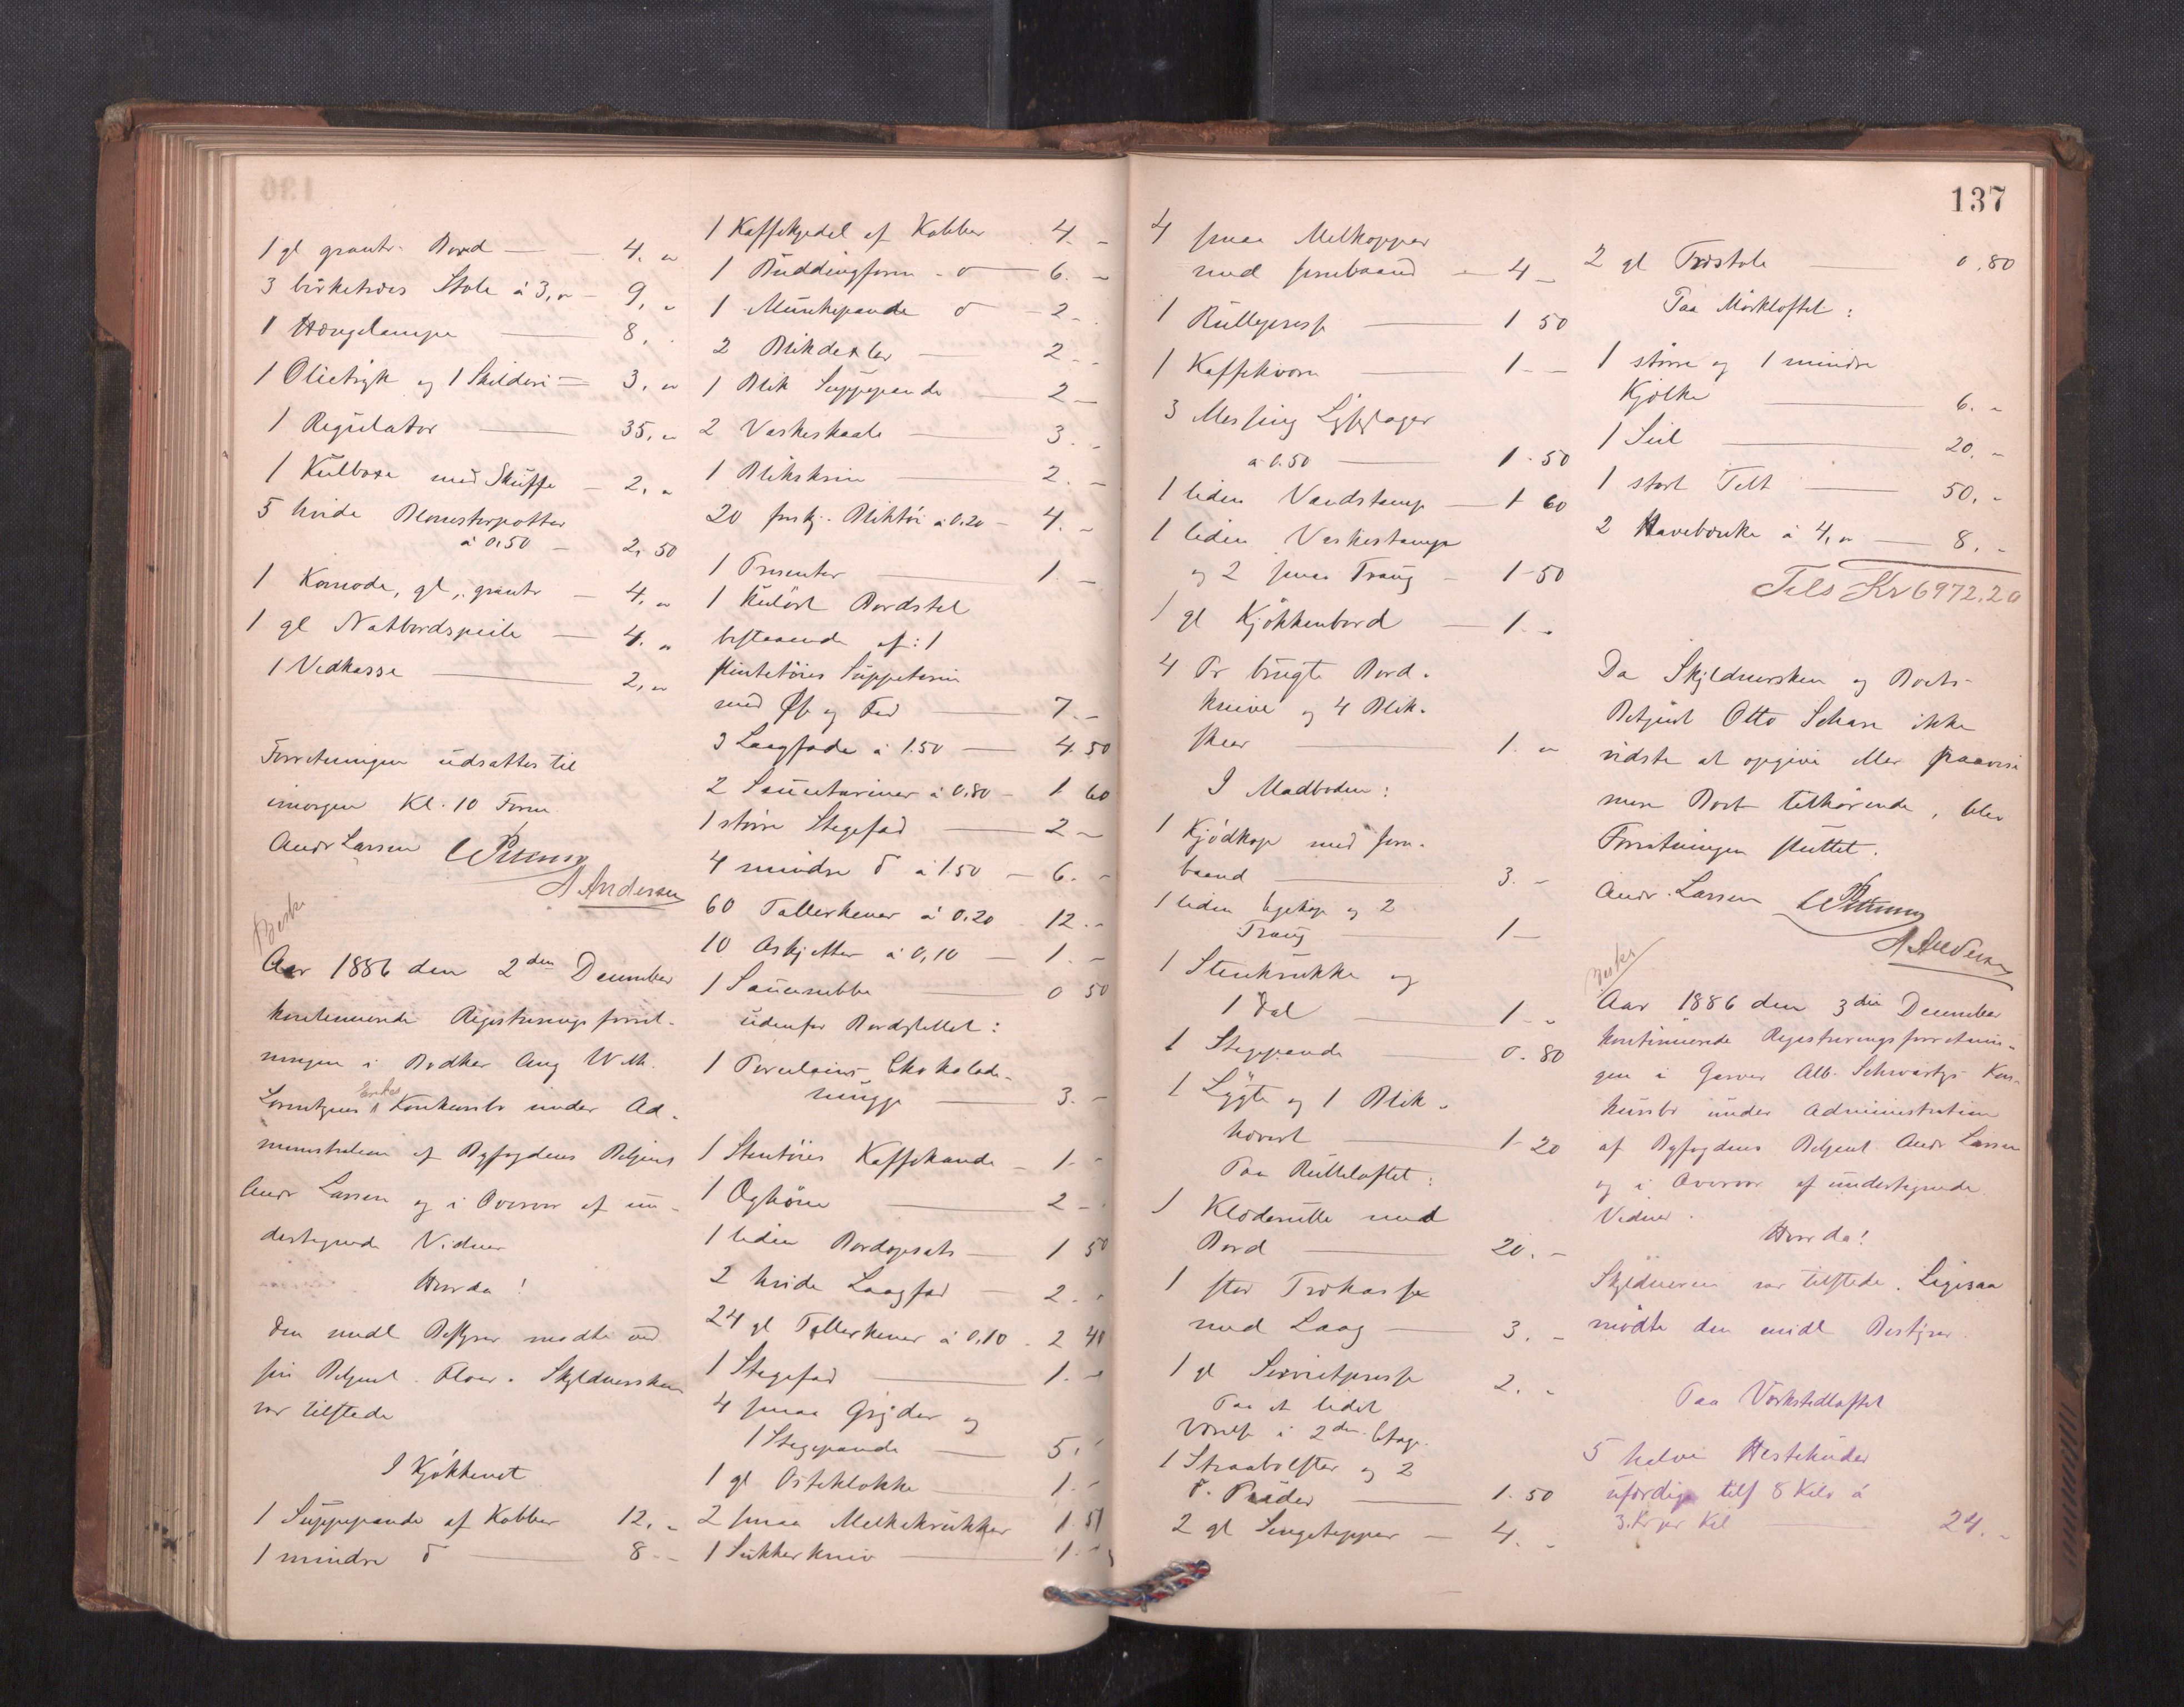 1 gl grantr. Bord — 4. "
3 birketræes Stole à 3, " — 9, "
1 Hængelampe — 8, "
1 Olietryk og 1 Skilderi — 3, "
1 Regulator — 35, "
1 Kulboxe med Skuffe — 2, "
5 hvide Blomsterpotter
à 0,50 — 2, 50
1 Komode, gl, grantr — 4, "
1 gl Natbordspeile — 4. "
1 Vedkasse — 2, "
Forretningen udsattes til
imorgen Kl. 10 Form
Andr Larsen
A Andersen
Beskr
Aar 1886 den 2den December
kontinuerede Registreringsforret-
ningen i Bødker Aug W. M.
Lorentzens Enkes Konkursbo under Ad-
ministration af Byfogdens Betjent
Andr Larsen og i Overvær af un-
dertegnede Vidner
Hvorda!
Den midl Bestyrer mødte ved
sin Betjent. Skyldnersken
var tilstede
I Kjøkkenet
1 Suppepande af Kobber 12, "
1 mindre do — 8 -
1 Kaffekjedel af Kobber 4. -
1 Buddingform do — 6. -
1 Munkepande do — 2 -
2 Blikdexler — 2 -
1 Blik Suppepande — 2 -
2 Vaskeskaale — 3. -
1 Blikskrin — 2. -
20 forskj. Bliktøi à 0,20 — 4. -
1 Presenter — 1 -
1 kulørt Bordstel
bestaaende af: 1
stentøies Suppeterin
med Øse og Fad — 7. -
3 Laagfade à 1.50 — 4.50
2 Sauceterriner à 0,80 — 1 60
1 større Stegefad — 2 -
4 mindre do à 1.50 — 6. -
60 Tallerkener à 0.20 12. -
10 Askjetter à 0,10 — 1. -
1 Saucenebbe — 0 50
udenfor Bordstellet:
1 Porcelains Chokolade-
mugge — 3. -
1 Stentøies Kaffekande — 1. -
1 Æghøne — 2 -
1 liden Bordopsats — 1 50
2 hvide Laagfad — 2. -
24 gl Tallerkener à 0,10 . 2 40
1 Stegefad — 1. -
4 smaa Gryder og
1 Stegepande — 5. -
1 gl Osteklokke — 1. -
2 smaa Melkekrukker 1 50
1 Sukkerkniv — 1. -
137
4 smaa Melkopper
med Jernbaand — 4 -
1 Rullepresse — 1 50
1 Kaffekværn — 1 -
3 Messing Lysestager
à 0.50 — 1 - 50
1 liden Vandstamp — 1 60
1 liden Vaskestamp
og 2 smaa Traug — 1 - 50
1 gl Kjøkkenbord — 1. -
4 Pr brugte Bord-
knive og 4 Blik-
skeer — 1. "
I Madboden:
1 Kjødkop med Jern-
baand — 3. -
1 liden og 2
Traug — 1 -
1 Stenkrukke og
1 Dal — 1 -
1 Stegpande — 0. 80
1 Lygte og 1 Blik-
— 1 - 20
Paa Rulleloftet:
1 Klæderulle med
Bord — 20. -
1 stor Trækasse
med Laag — 3. -
1 gl Servietpresse 2. -
Paa et lidet
Værelse i 2den Etage.
1 Straabolster og 2
do. Puder — 1. 50
2 gl Sengetepper — 4. -
2 gl Træstole — 0.80
Paa Mørkloftet:
1 større og 1 mindre
Kjølke — 6. -
1 Seil — 20. -
1 stort Telt — 50. -
2 Havebænke à 4, " — 8. -
Tils Kr 6972.20
Da Skyldnersken og Boets
Betjent Otto Schare ikke
vidste at opgive eller paavise
mere Boet tilhørende, blev
Forretningen sluttet.
Andr. Larsen
A Andersen
Beskr
Aar 1886 den 3die December
kontinuerede Registreringsforretnin-
gen i Garver Alb. Schwartz Kon-
kursbo under Administration
af Byfogdens Betjent Andr Larsen
og i Overvær af undertegnede
Vidner.
Hvorda!
Skyldneren var tilstede. Ligesaa
mødte den midl Bestyrer.
Paa Værkstedloftet
5 halve Hestehuder
ufærdige tils 8 Kilo à
3. Kr pr Kil — 24. -